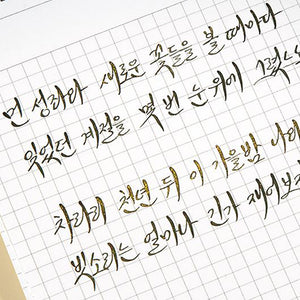 먼 성좌라 새로운 꽃들을 볼 때마다
잊었던 계절을 몇 번 눈 위에
차라리 천년 뒤 이 가을밤 나와
빗소리는 얼마나 긴가 재어보